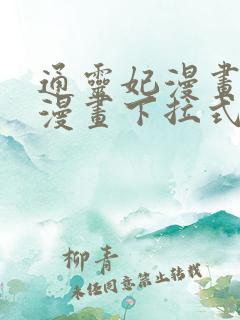 通靈妃漫畫
漫畫下拉式
柳青
未经同意禁止转载